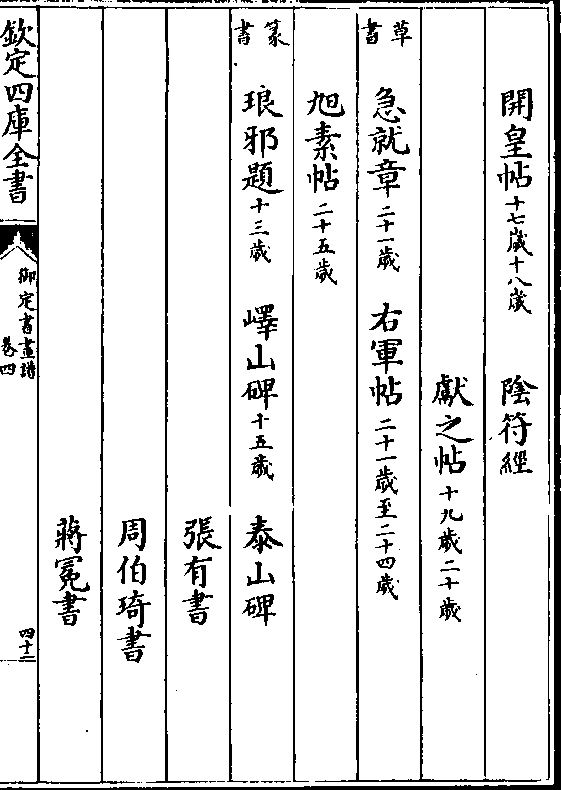 開皇帖十七歲十八歲 陰符經
獻之帖十九歲二十歲
草書 急就章二十一歲 右軍帖二十一歲至二十四歲
旭素帖二十五歲
篆書 琅邪題十三歲 嶧山碑十五歲 泰山碑
張有書
周伯琦書
蔣冕書
欽定四庫全書 御定書畫譜 卷四 四十二